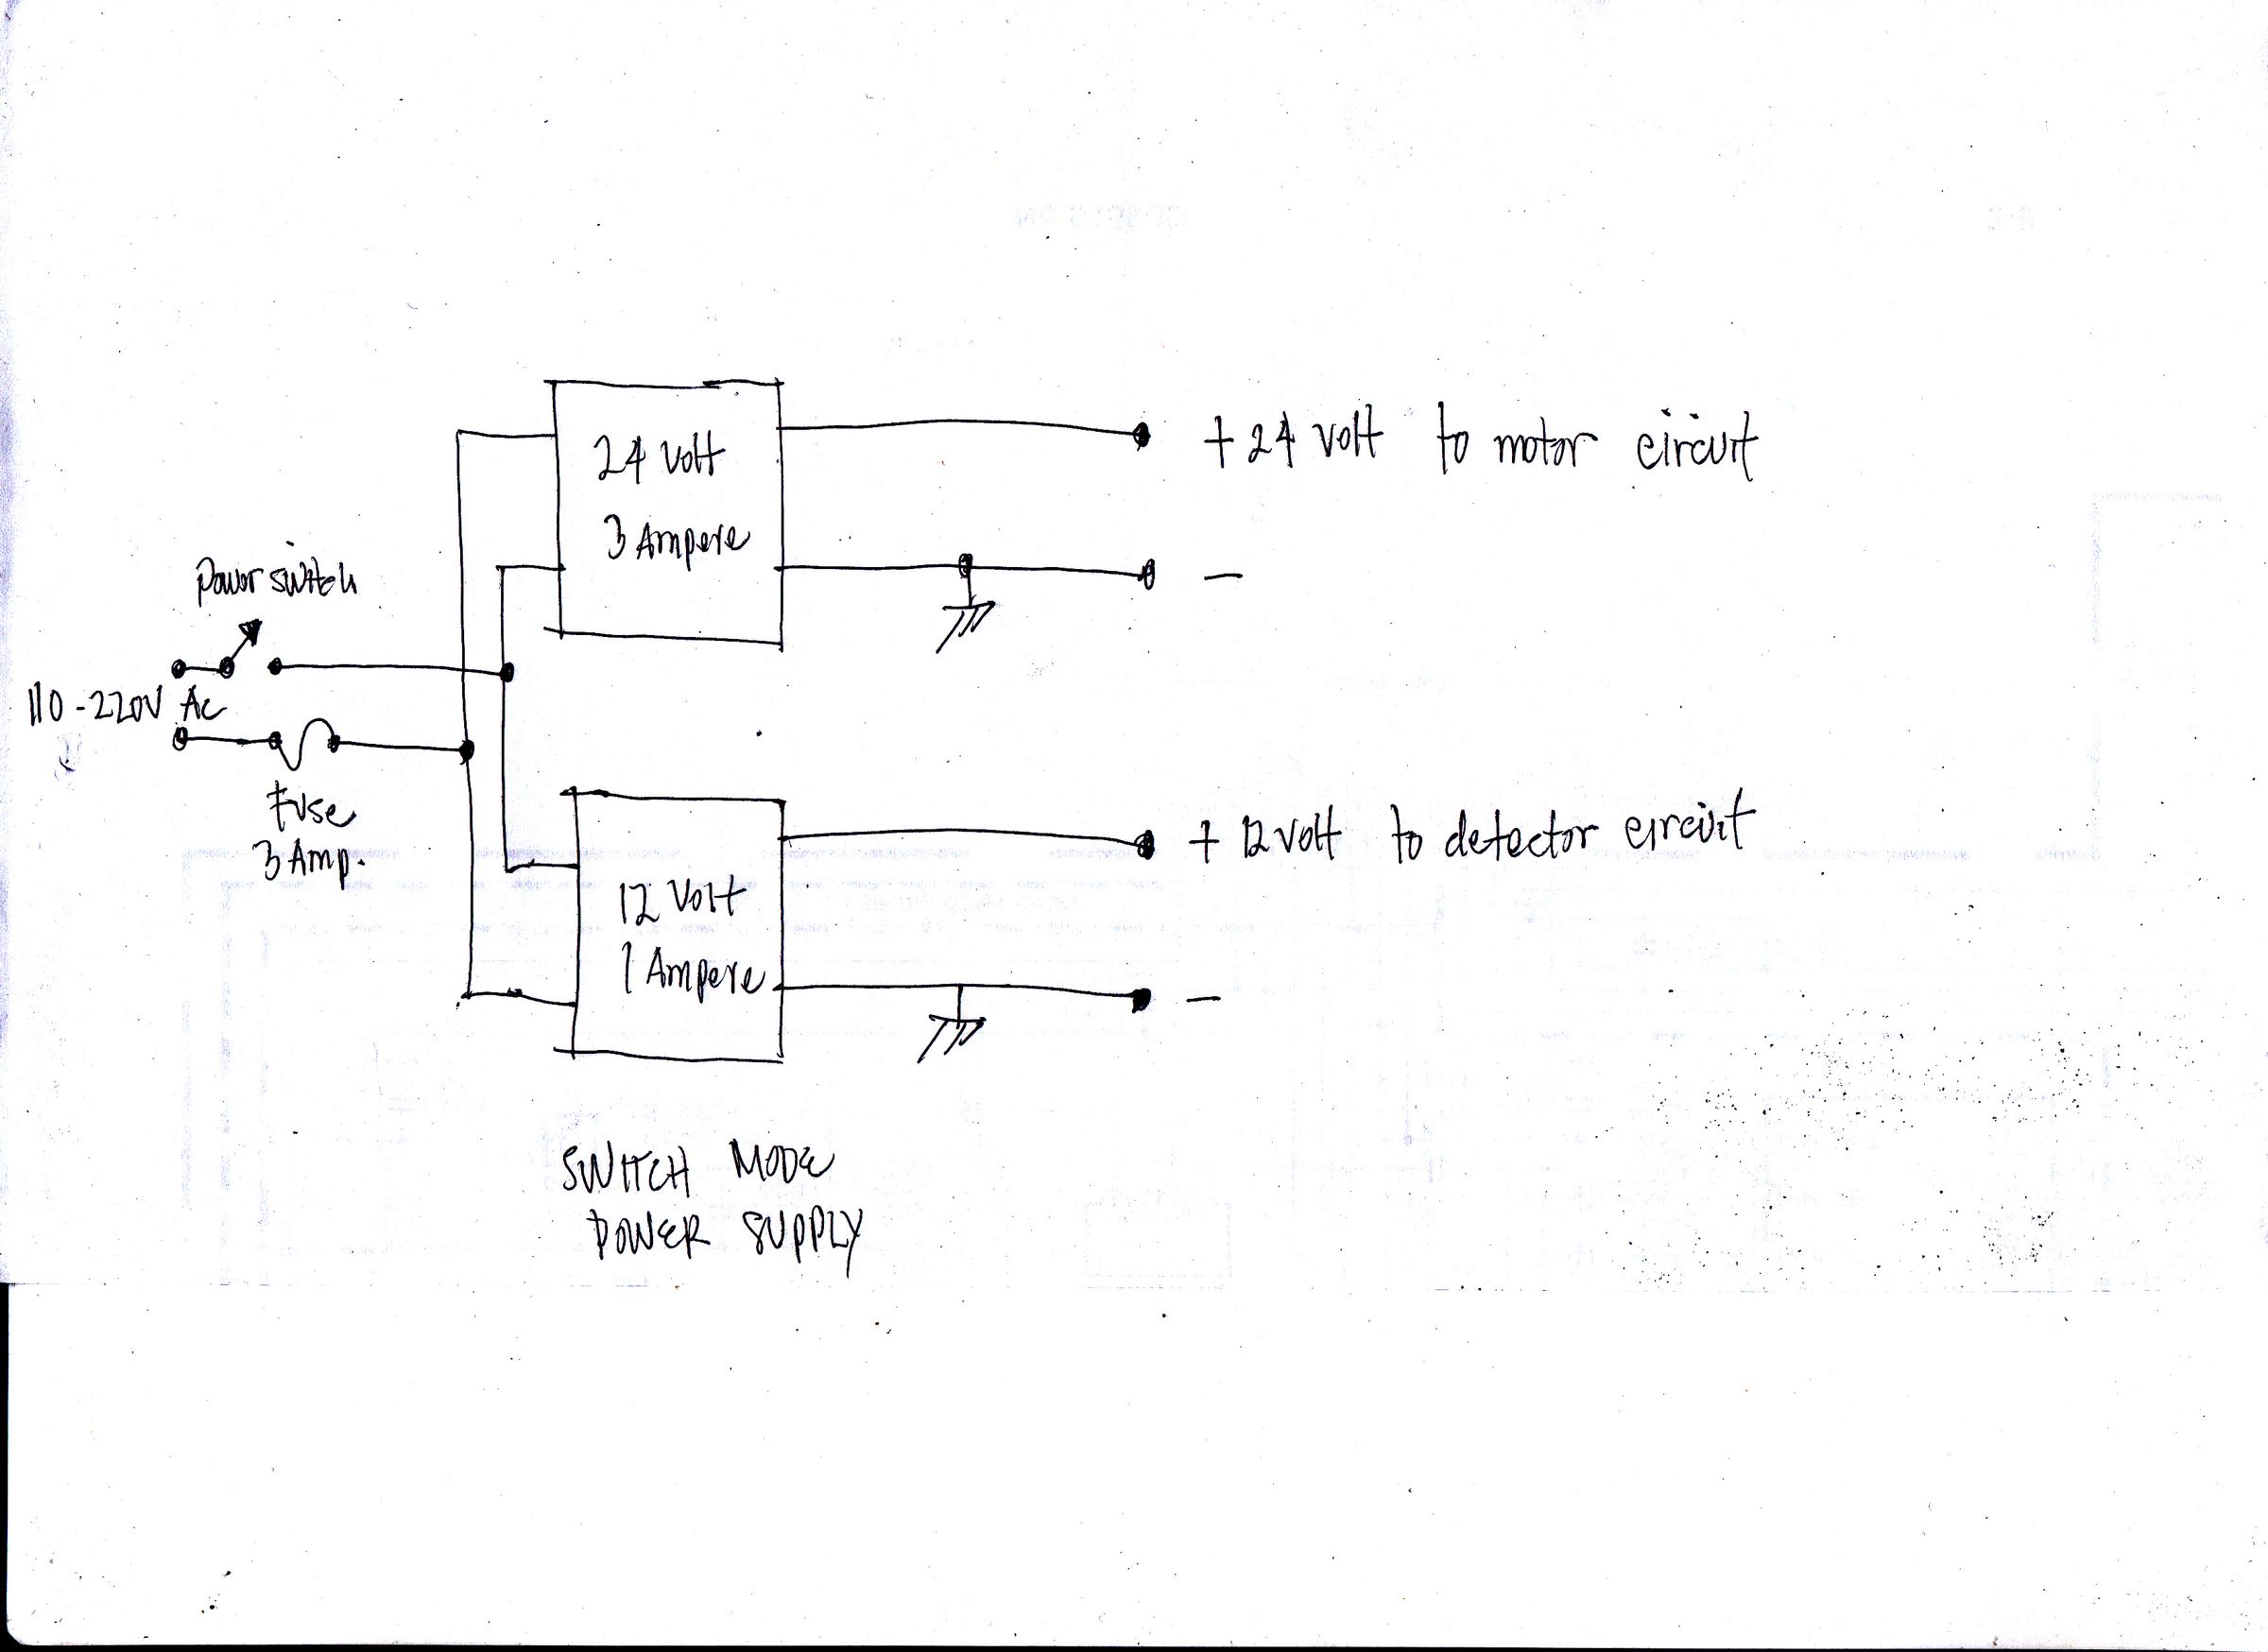 24 Volt
3 Ampere
+ 24 volt to motor circuit
-
Power switch
110-220V AC
Fuse
3 Amp.
12 Volt
1 Ampere
+ 12 volt to detector circuit
-
SWITCH MODE
POWER SUPPLY